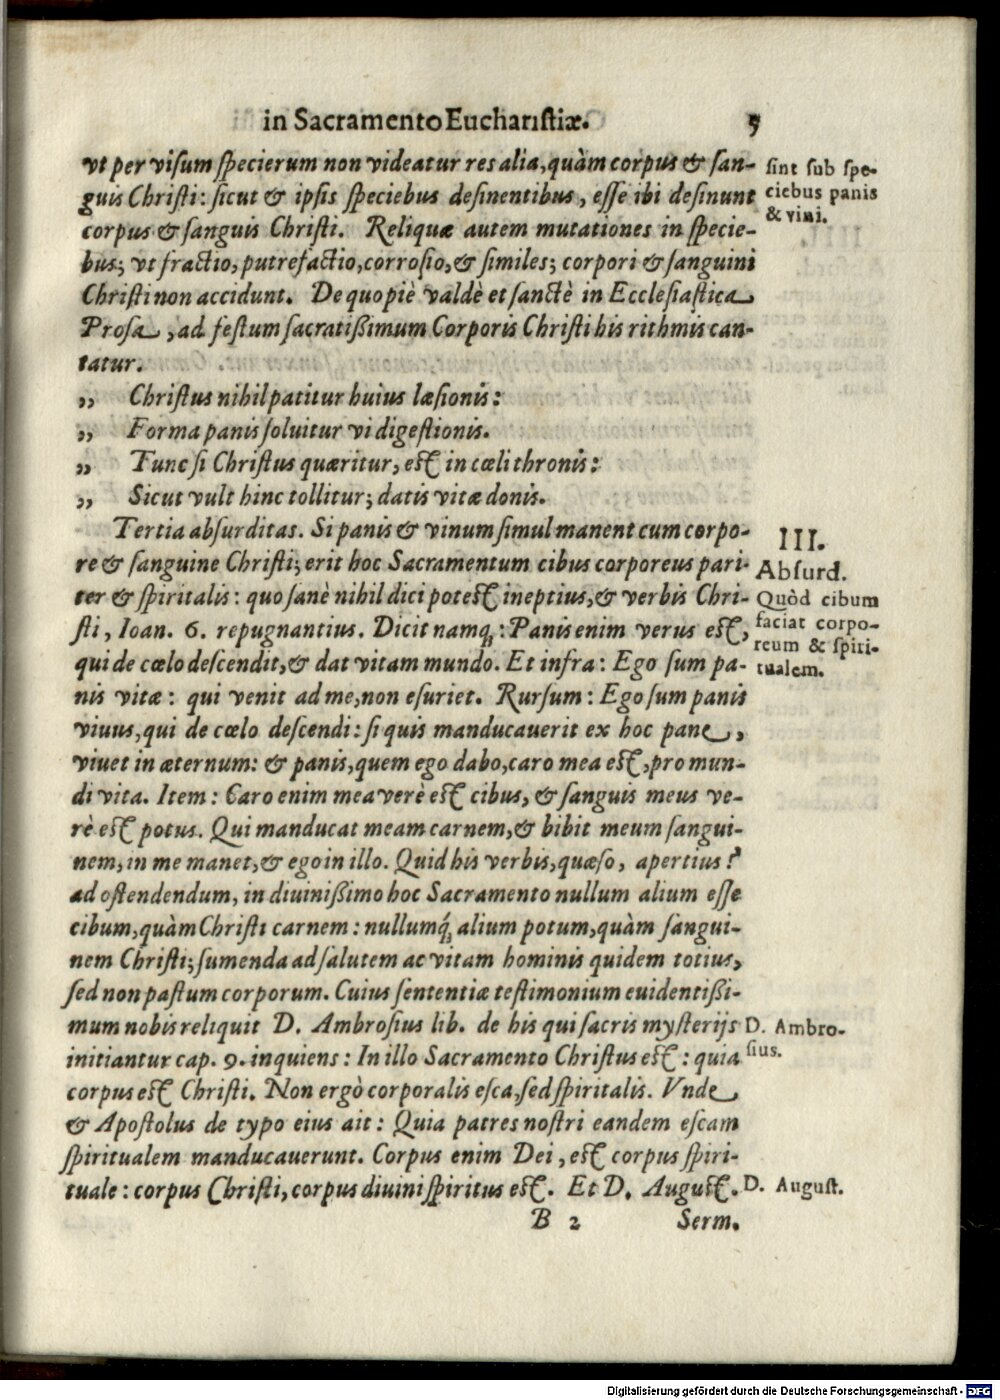 in Sacramento Eucharistiæ. 5
vt per visum specierum non videatur res alia, quàm corpus & san-
guis Christi: sicut & ipsis speciebus desinentibus, esse ibi desinunt
corpus & sanguis Christi. Reliquæ autem mutationes in specie-
bus; vt fractio, putrefactio, corrosio, & similes; corpori & sanguini
Christi non accidunt. De quo piè valdè et sanctè in Ecclesiastica
Prosa, ad festum sacratißimum Corporis Christi his rithmis can-
tatur.
„ Christus nihil patitur huius læsionis:
„ Forma panis soluitur vi digestionis.
„ Tunc si Christus quæritur, est in cœli thronis:
„ Sicut vult hinc tollitur; datis vitæ donis.
Tertia absurditas. Si panis & vinum simul manent cum corpo-
re & sanguine Christi; erit hoc Sacramentum cibus corporeus pari-
ter & spiritalis: quo sanè nihil dici potest ineptius, & verbis Chri-
sti, Ioan. 6. repugnantius. Dicit namq́;: Panis enim verus est,
qui de cœlo descendit, & dat vitam mundo. Et infra: Ego sum pa-
nis vitæ: qui venit ad me, non esuriet. Rursum: Ego sum panis
viuus, qui de cœlo descendi: si quis manducauerit ex hoc pane,
viuet in æternum: & panis, quem ego dabo, caro mea est, pro mun-
di vita. Item: Caro enim mea verè est cibus, & sanguis meus ve-
rè est potus. Qui manducat meam carnem, & bibit meum sangui-
nem, in me manet, & ego in illo. Quid his verbis, quæso, apertius?
ad ostendendum, in diuinißimo hoc Sacramento nullum alium esse
cibum, quàm Christi carnem: nullumq́; alium potum, quàm sangui-
nem Christi; sumenda ad salutem ac vitam hominis quidem totius,
sed non pastum corporum. Cuius sententiæ testimonium euidentißi-
mum nobis reliquit D. Ambrosius lib. de his qui sacris mysterijs
initiantur cap. 9. inquiens: In illo Sacramento Christus est: quia
corpus est Christi. Non ergò corporalis esca, sed spiritalis. Vnde
& Apostolus de typo eius ait: Quia patres nostri eandem escam
spiritualem manducauerunt. Corpus enim Dei, est corpus spiri-
tuale: corpus Christi, corpus diuini spiritus est. Et D. August.
B 2 Serm.
sint sub spe-
ciebus panis
& vini.
III.
Absurd.
Quòd cibum
faciat corpo-
reum & spiri-
tualem.
D. Ambro-
sius.
D. August.
Digitalisierung gefördert durch die Deutsche Forschungsgemeinschaft - DFG